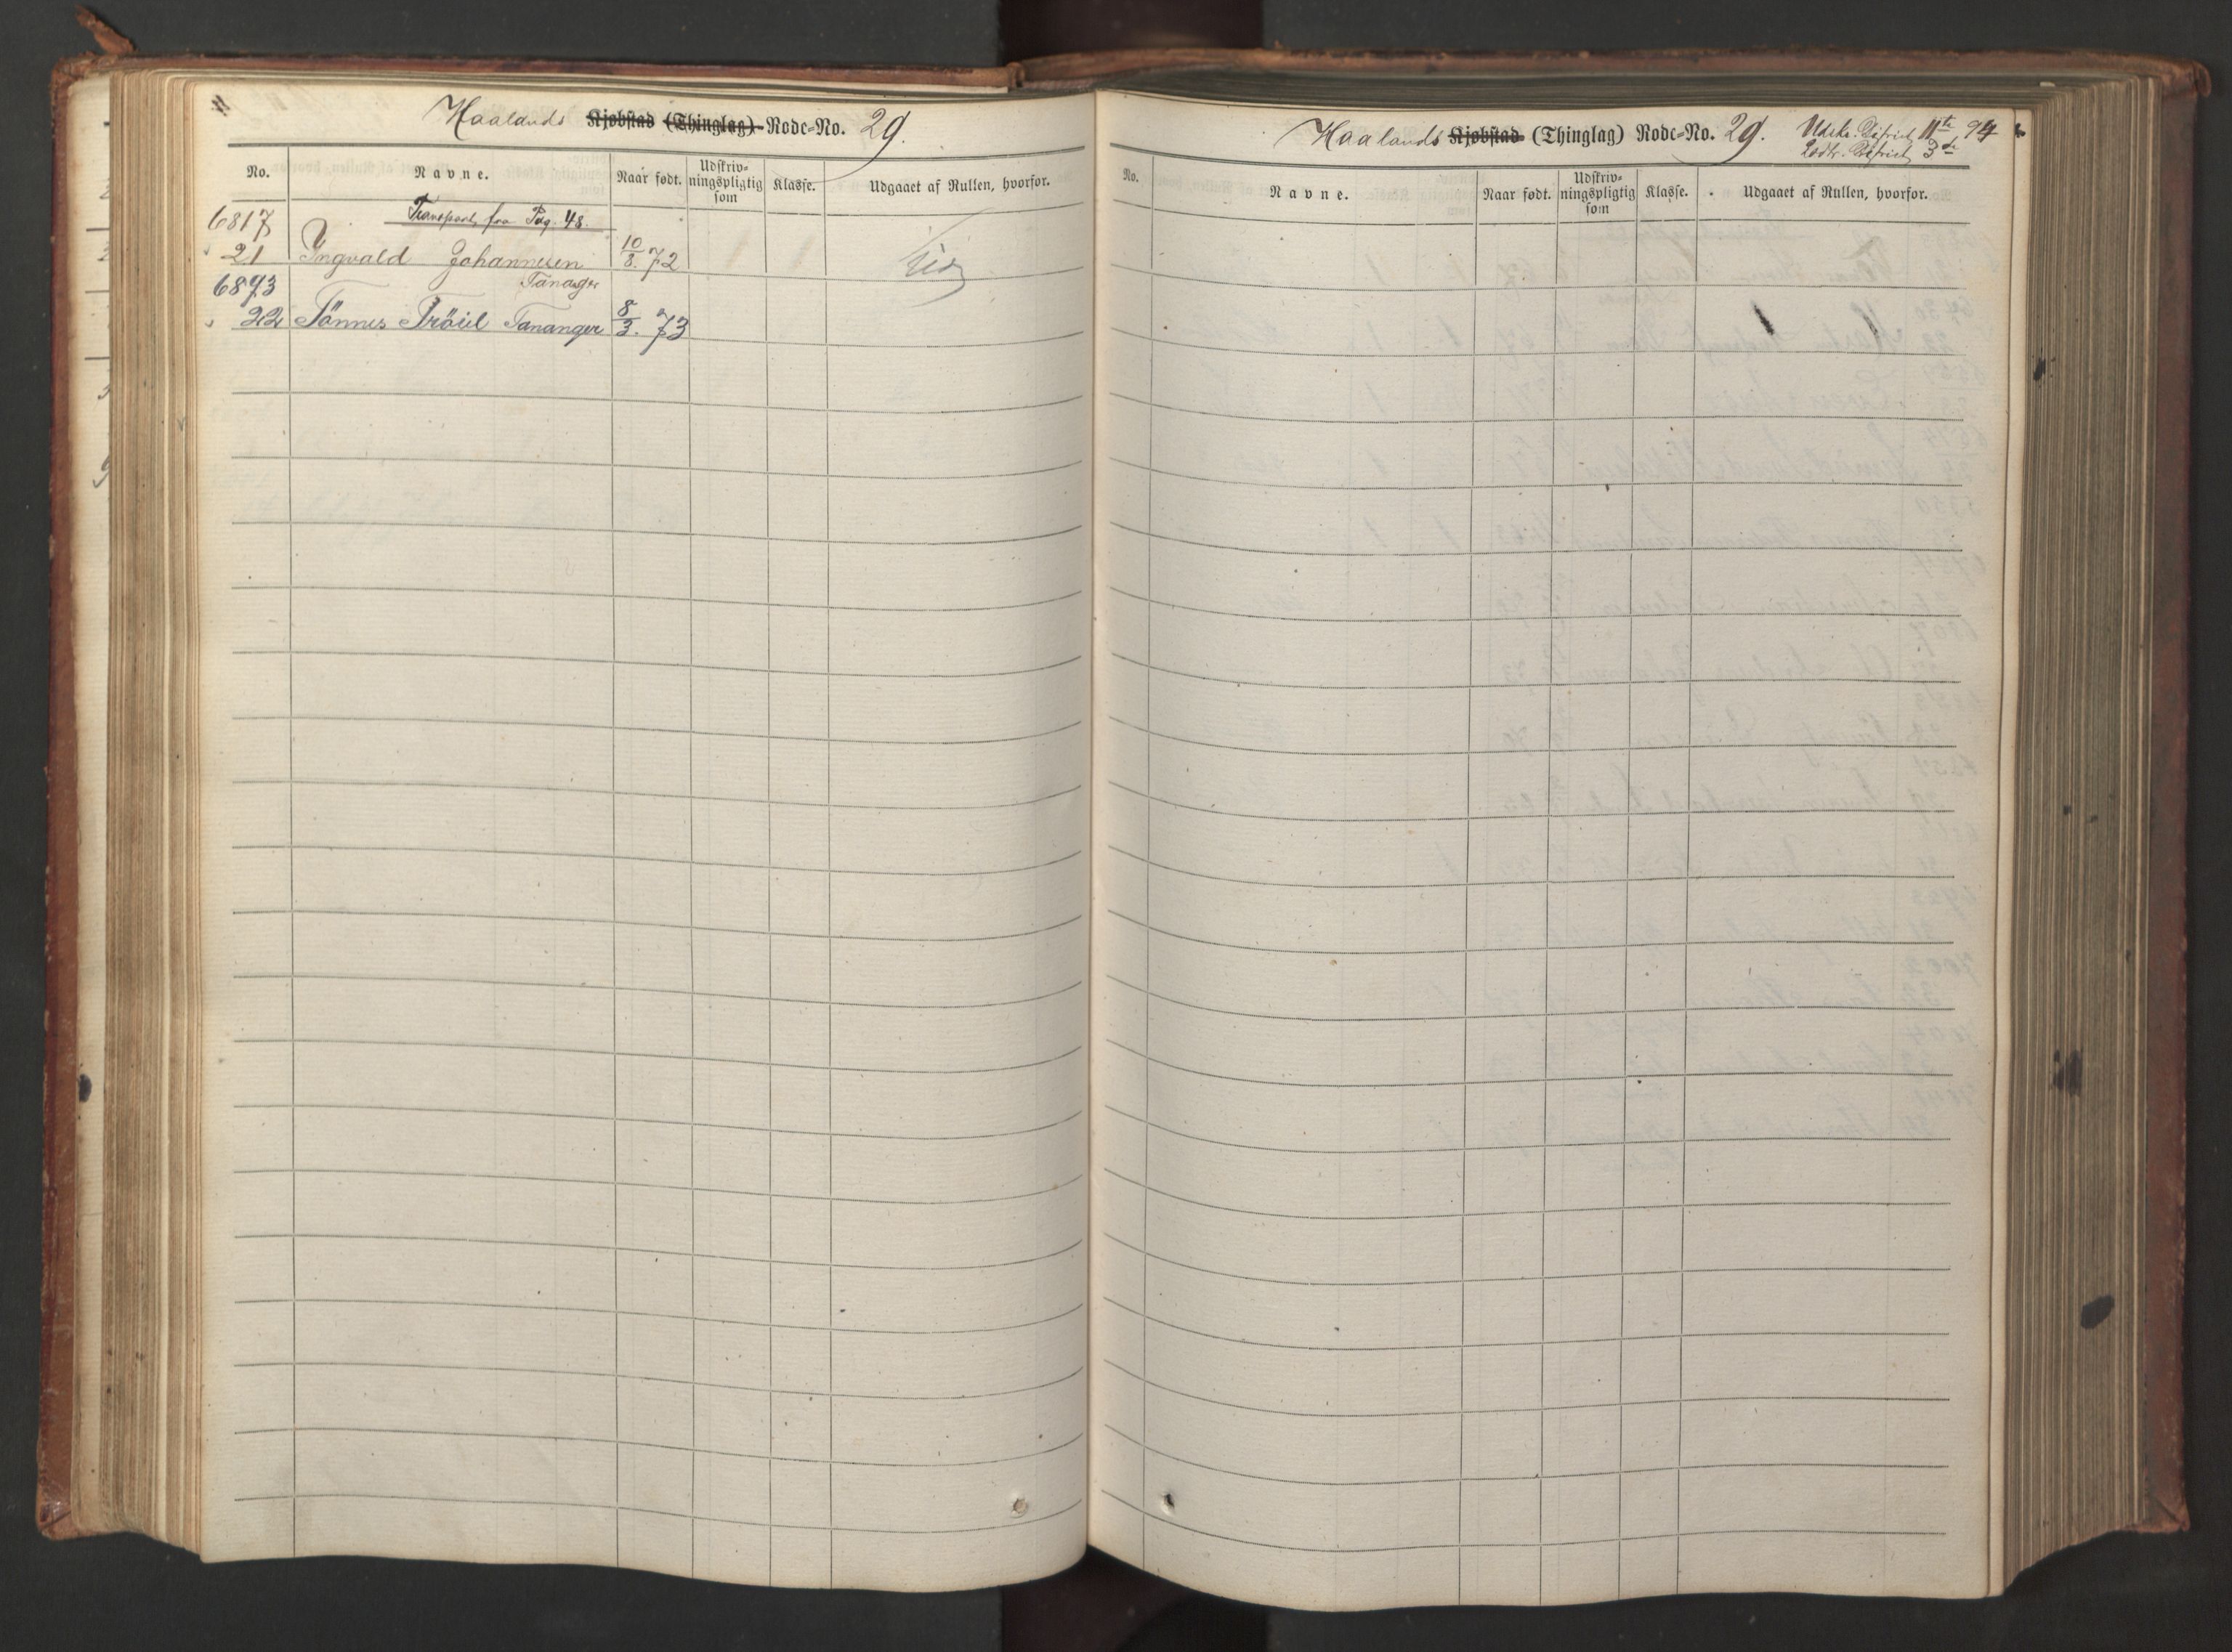 Haalands Kjøbstad (Thinglag) Rode-No. 29.
No. Navne. Naar født. Udskriv-ningspligtig som Klasse. Udgaaet af Rullen, hvorfor.
Transport fra Pag. 48.
6817
21 Ingvald Johannesen 10/8. 72
Tananger
6893
22 Tönnes Tananger 8/3. 73
Haalands Kjøbstad (Thinglag) Rode-No. 29. Udskr. District 11te 94
Lodts. District 3de
No. Navne. Naar født. Udskriv-ningspligtig som Klasse. Udgaaet af Rullen, hvorfor.